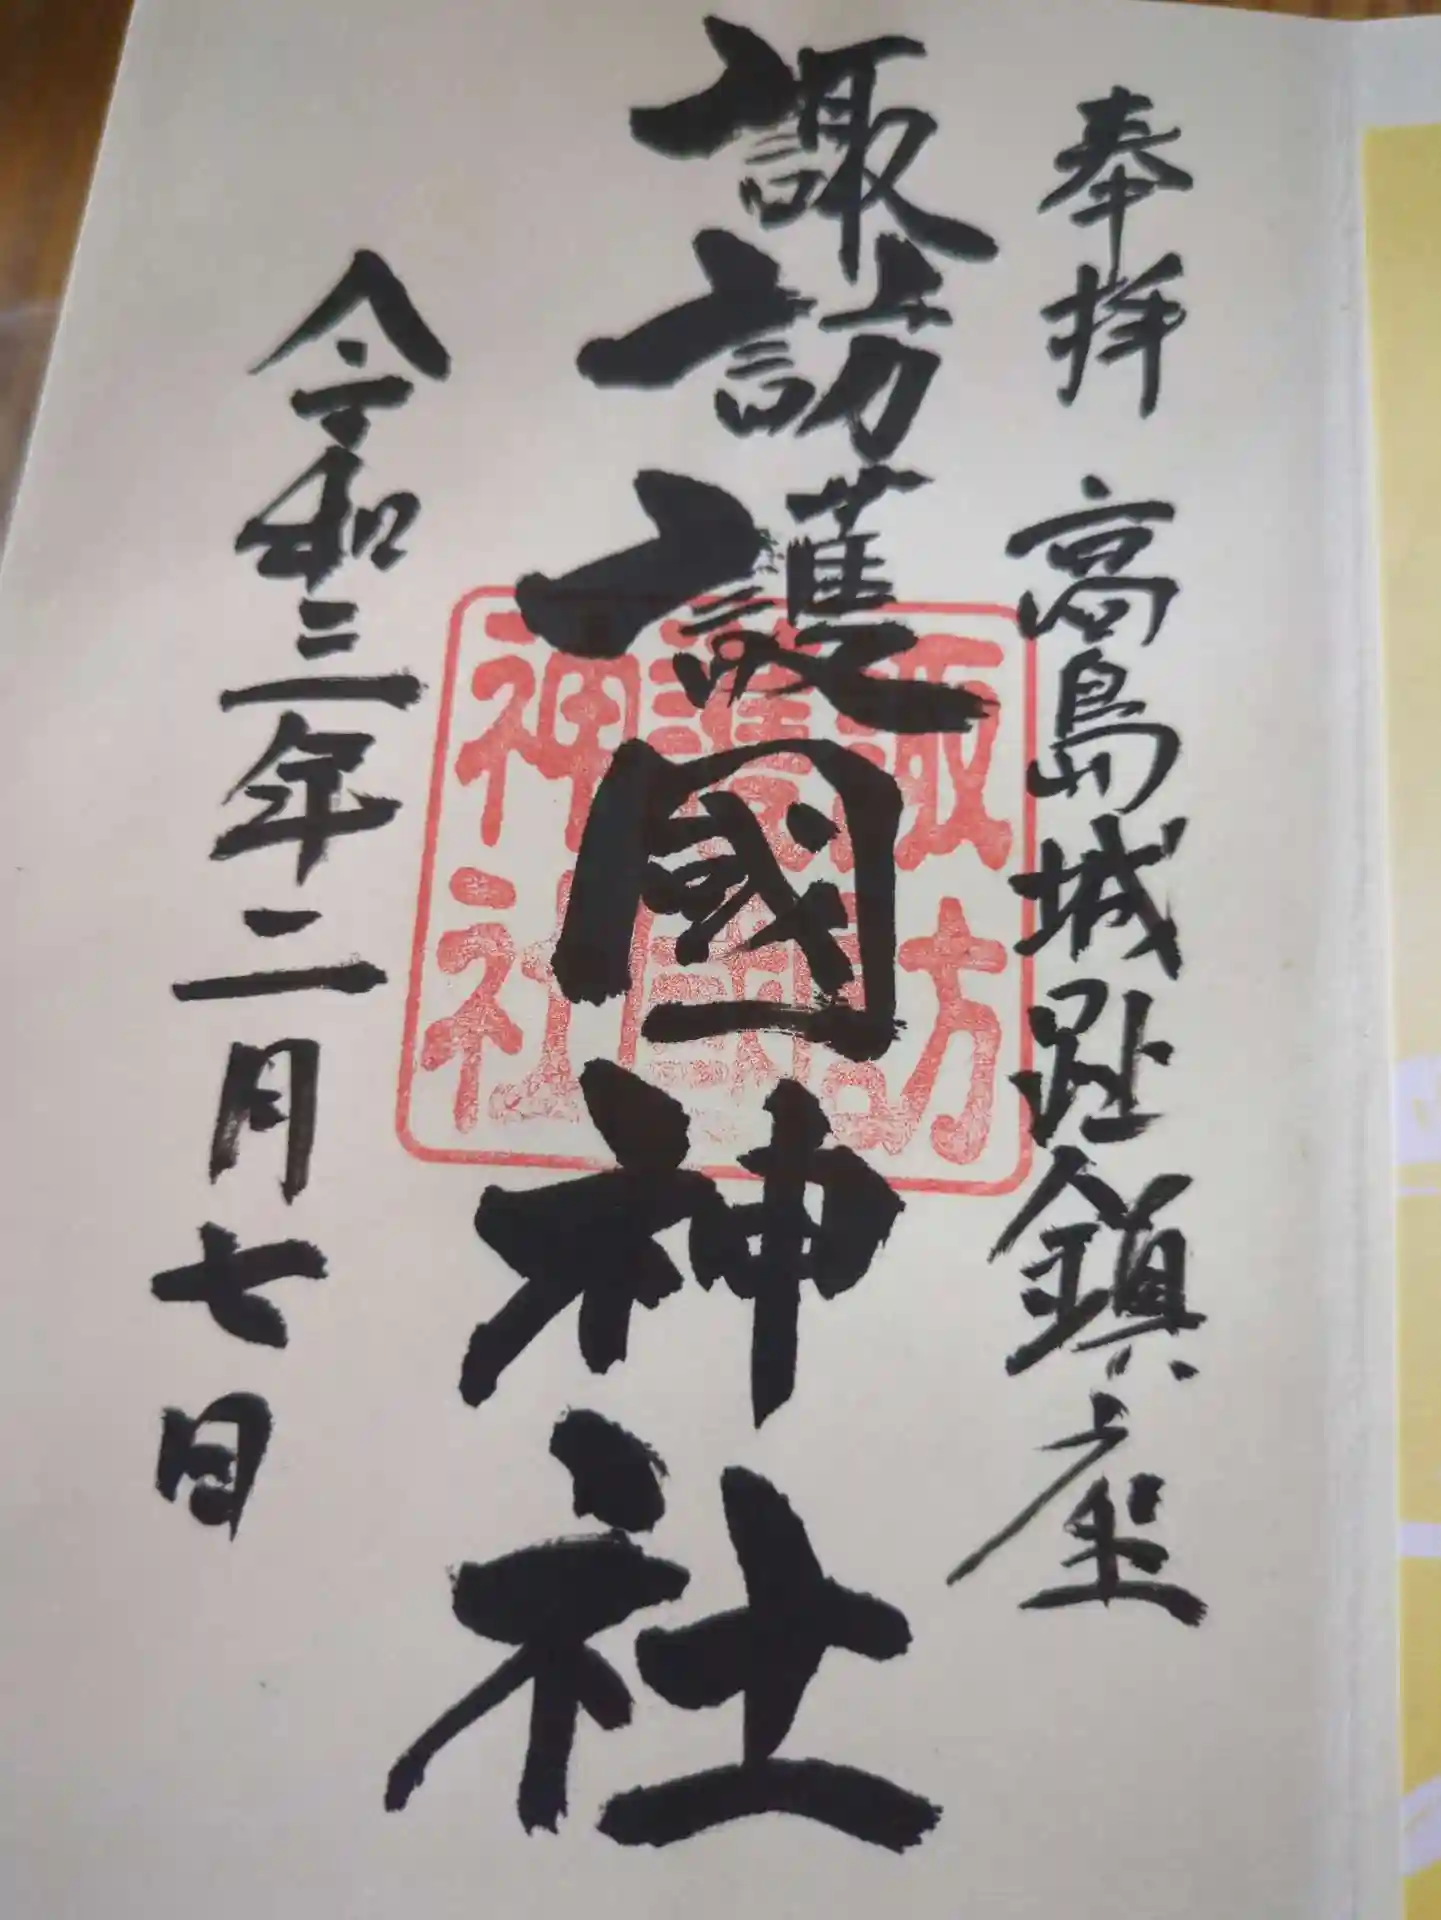 奉拝 高島城趾鎮座
諏訪護國神社
諏訪
護國
神社
令和三年二月七日